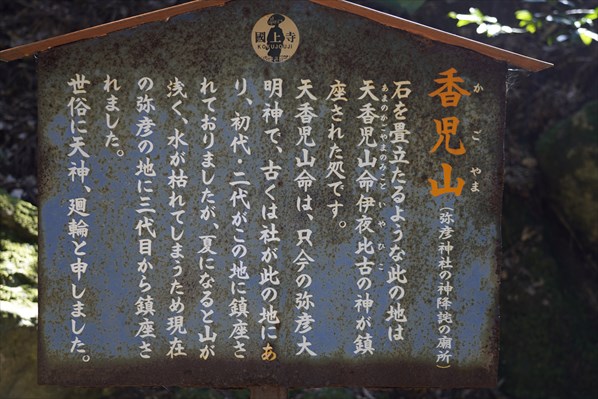 國上寺
KOKUJOUJI
香児山
かごやま
(弥彦神社の神降詫の廟所)
石を畳立たるような此の地は
あまのかごやまのみこといやひこ
天香児山命伊夜比古の神が鎮
座された処です。
天香児山命は、只今の弥彦大
明神で、古くは社が此の地にあ
り、初代・二代がこの地に鎮座さ
れておりましたが、夏になると山が
浅く、水が枯れてしまうため現在
の弥彦の地に三代目から鎮座さ
れました。
世俗に天神、廻輪と申しました。